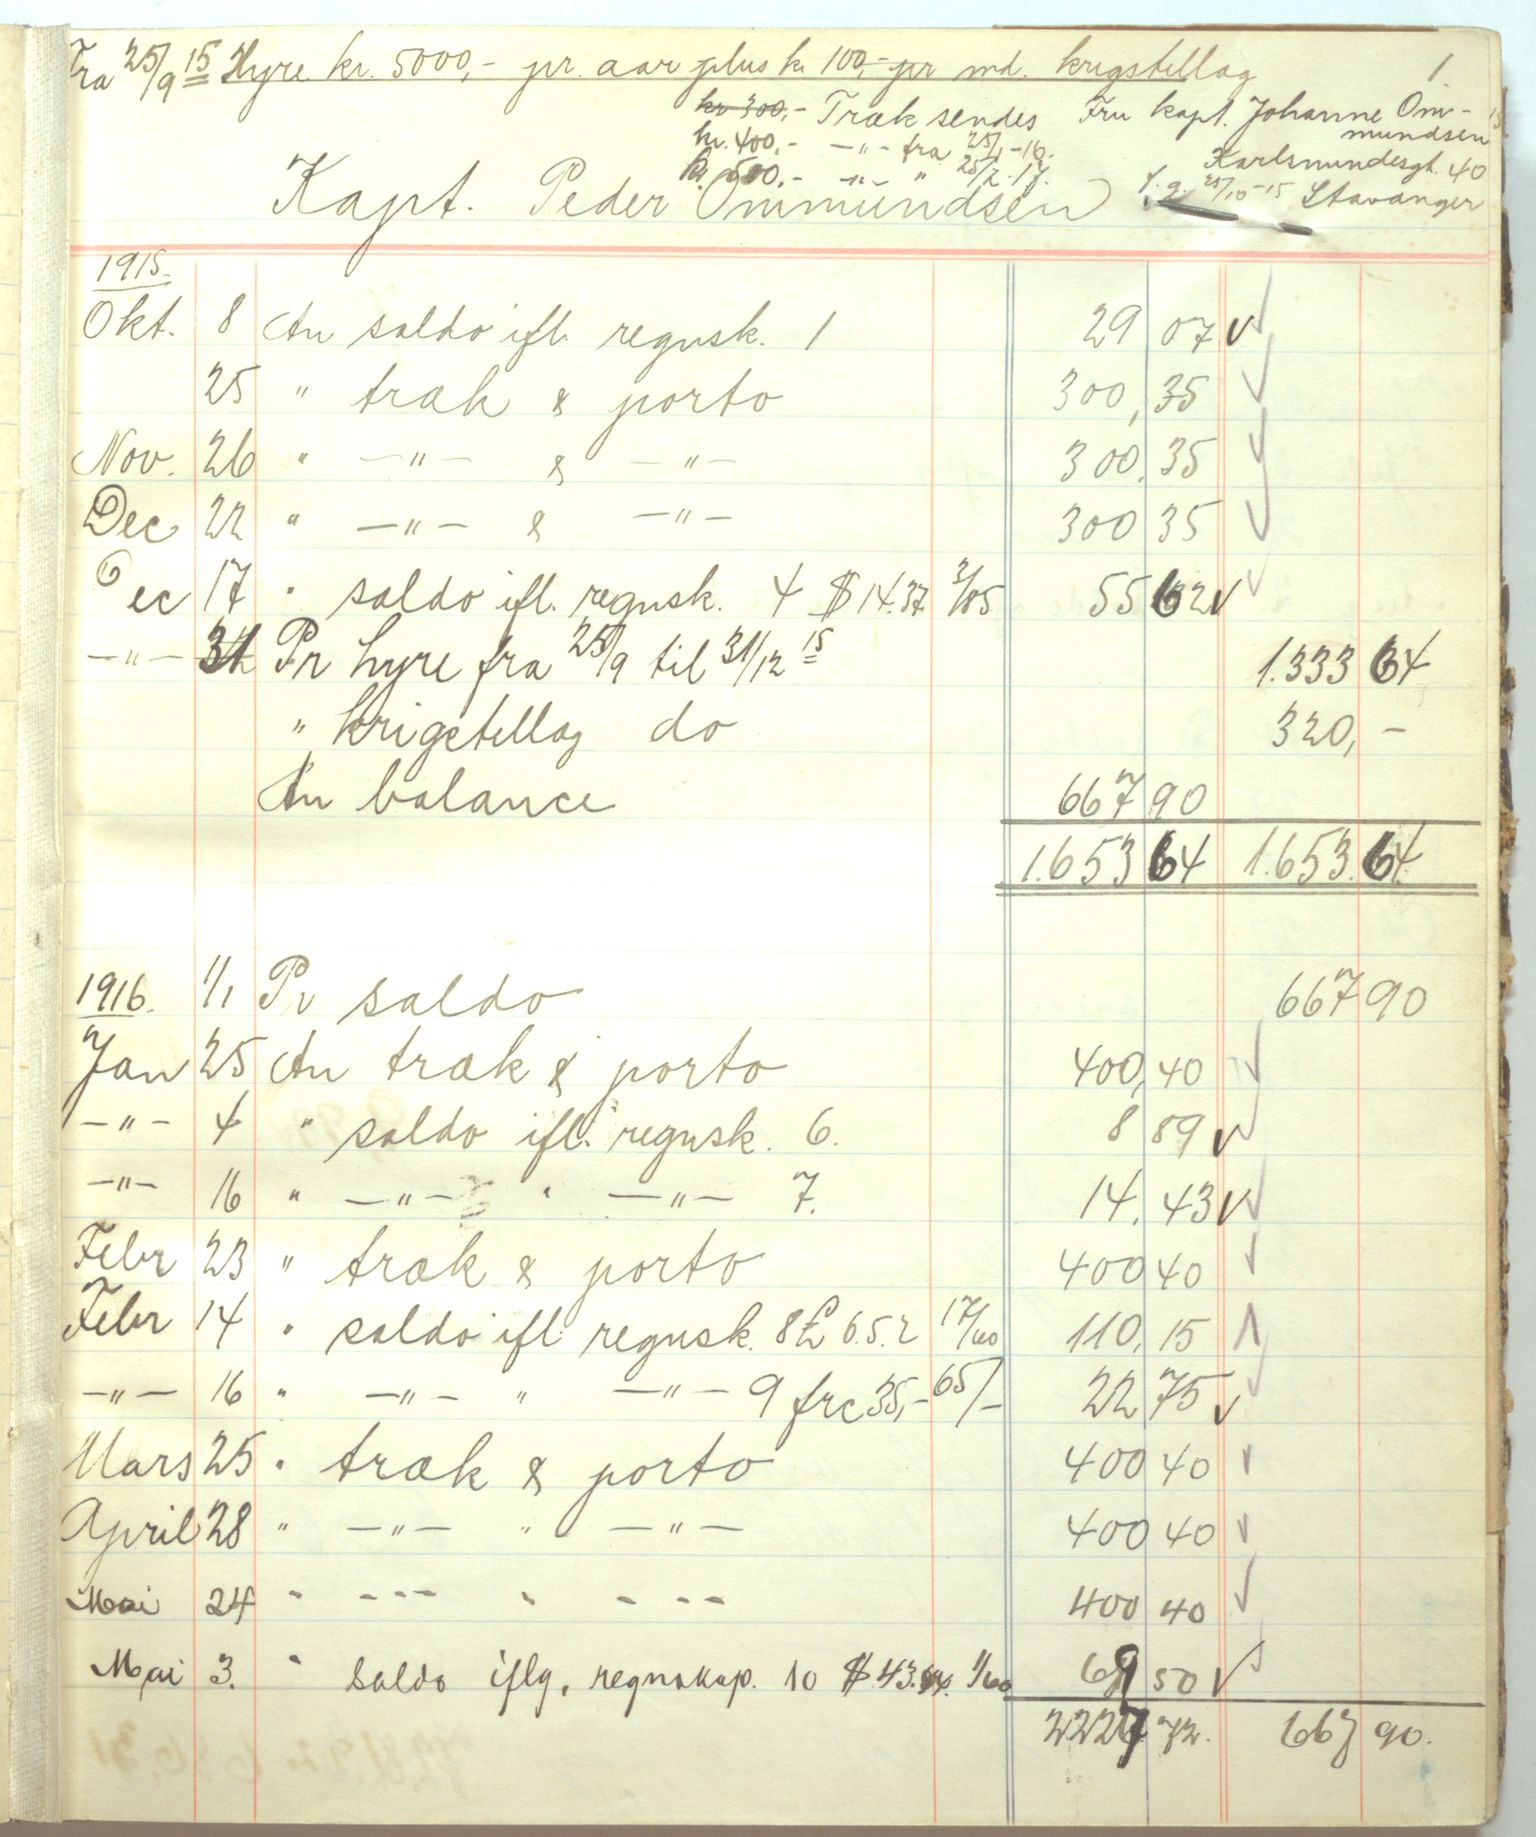 Fra 25/9 15 Hyre kr. 5000,- pr. aar plus kr 100,- pr md. krigstillag 1.
kr 300,- Træk sendes Fru kapt. Johanne Om-
mundsen
kr. 400,- -"- fra 25/1-16. Karlsmundesgt. 40
kr. 500,- -"- " 25/2.17. f.g. 25/10-15 Stavanger
Kapt. Peder Ommundsen
1915.
Okt. 8 An saldo ifl. regnsk. 1 29 07
25 " træk & porto 300,35
Nov. 26 " -"- & -"- 300.35
Dec 22 " -"- & -"- 300 35
Dec 17 " saldo ifl. regnsk. 4 $ 14.37 3/85 55 62
-"- 31 Pr hyre fra 25/9 til 31/12 15 1.333 64
" krigstillag do 320,-
An balance 667 90
1.653 64 1.653.64
1916. 1/1 Pr saldo 667 90
Jan 25 An træk & porto 400,40
-"- 4 " saldo ifl. regnsk. 6. 8 89
-"- 16 " -"- " -"- 7. 14.43
Febr 23 " træk & porto 400 40
Febr 14 " saldo ifl regnsk. 8 £ 6.5.2 17/60 110,15
-"- 16 " -"- " -"- 9 frc 35,- 65/- 22 75
Mars 25 " træk & porto 400 40
April 28 " -"- " -"- 400 40
Mai 24 " -"- " -"- 400 40
Mai 3. " saldo iflg. regnskap. 10 $ 43.44. 1/60 69 50
2227 72. 667 90.